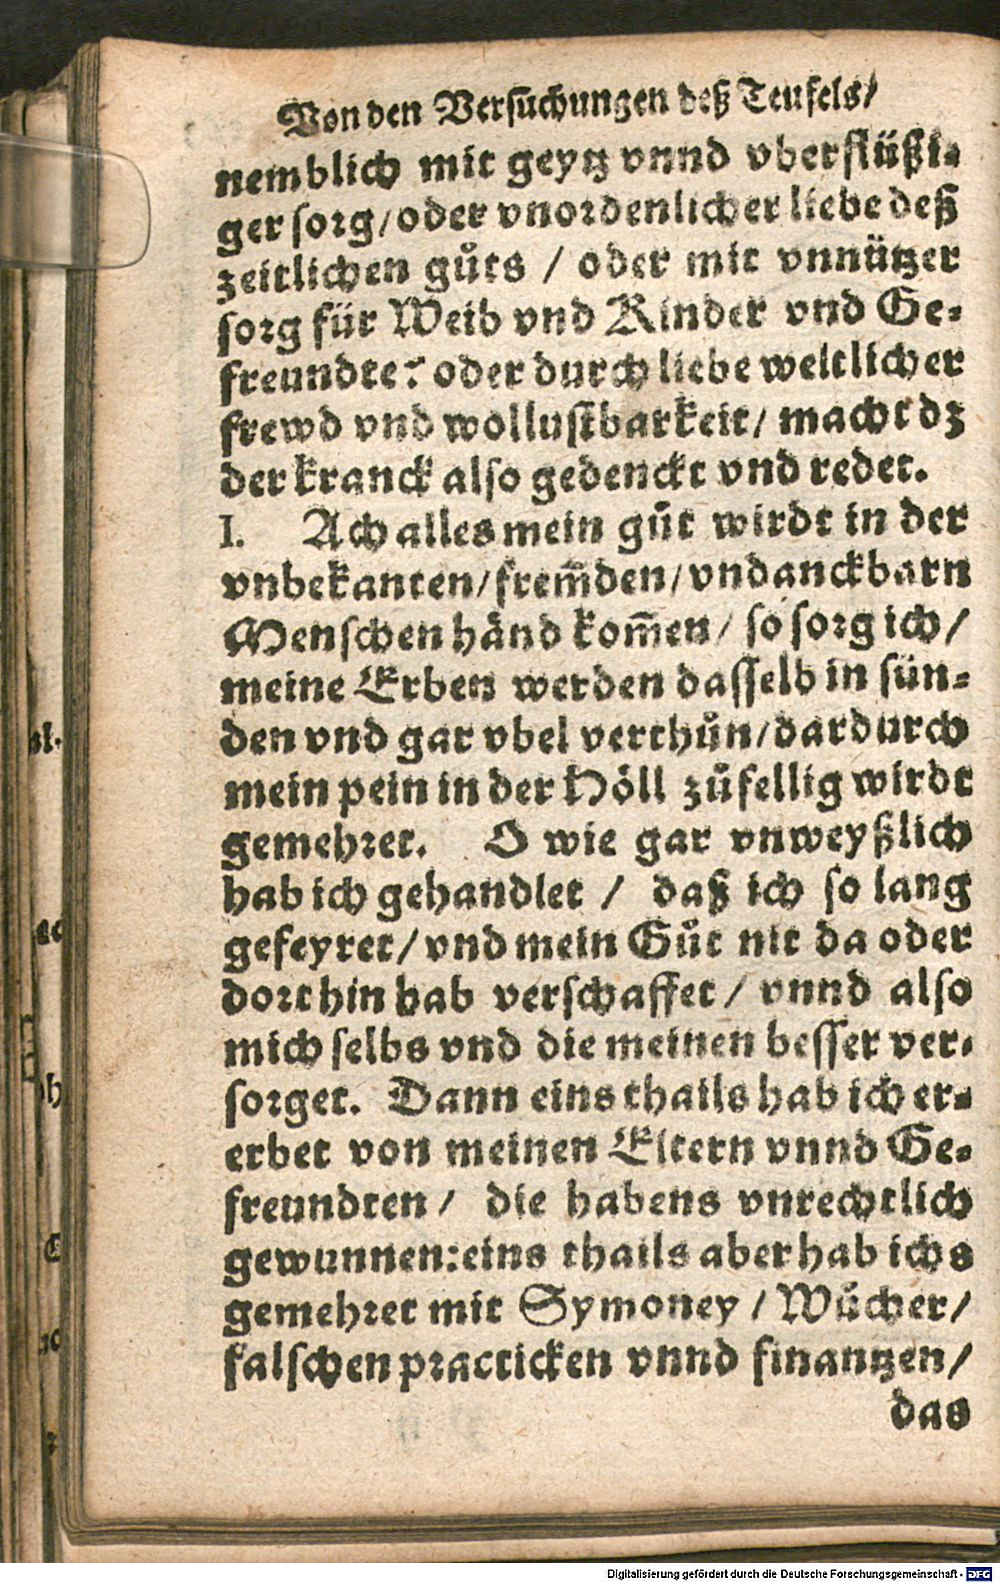 Von den Versuchungen deß Teufels/
nemblich mit geytz vnnd vberflüßi-
ger sorg/oder vnordenlicher liebe deß
zeitlichen gůts / oder mit vnnützer
sorg für Weib vnd Kinder vnd Ge-
freundte: oder durch liebe weltlicher
frewd vnd wollustbarkeit/ macht dz
der kranck also gedenckt vnd redet.
I. Ach alles mein gůt wirdt in der
vnbekanten/frem̃den/vndanckbarn
Menschen hånd kom̃en/ so sorg ich/
meine Erben werden dasselb in sün-
den vnd gar vbel verthůn/dardurch
mein pein in der Höll zůfellig wirdt
gemehret. O wie gar vnweyßlich
hab ich gehandlet / daß ich so lang
gefeyret/vnd mein Gůt nit da oder
dort hin hab verschaffet/ vnnd also
mich selbs vnd die meinen besser ver-
sorget. Dann eins thails hab ich er-
erbet von meinen Eltern vnnd Ge-
freundten/ die habens vnrechtlich
gewunnen:eins thails aber hab ichs
gemehret mit Symoney / Wůcher/
falschen practicken vnnd finantzen/
das
Digitalisierung gefördert durch die Deutsche Forschungsgemeinschaft - DFG